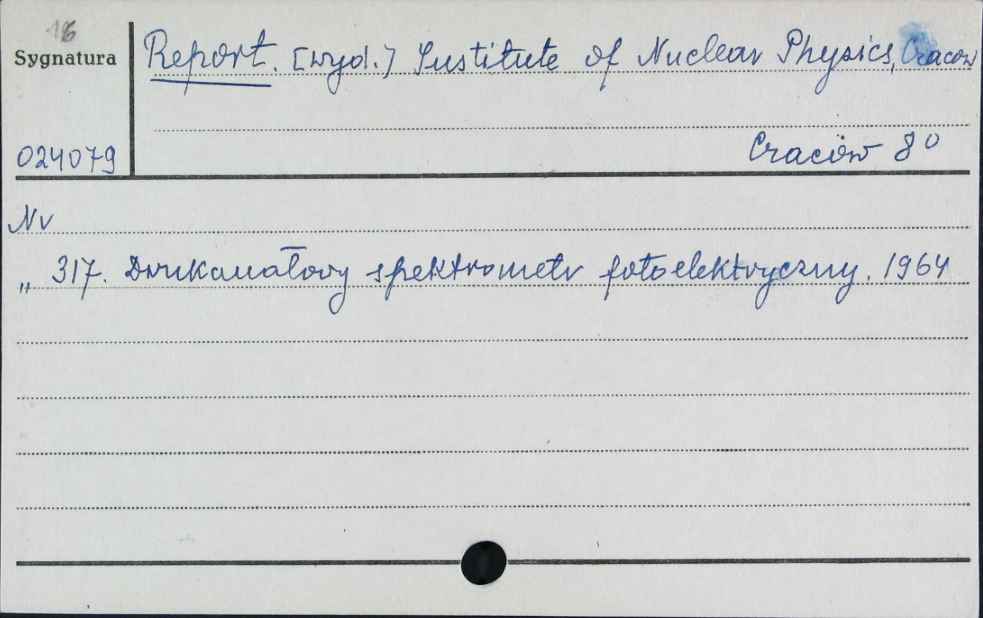 16
Sygnatura
Report. [wyd.] Institute of Nuclear Physics, Cracow
024079
Craców 8°
Nr
„ 317. Dwukanałowy spektrometr fotoelektryczny. 1964